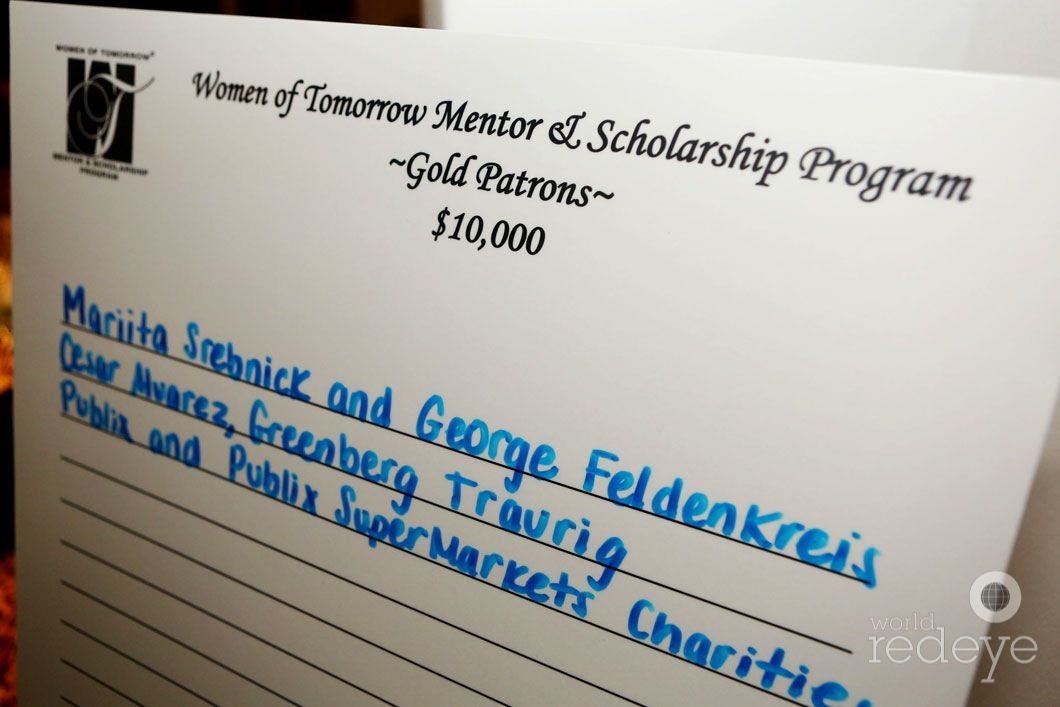 WOMEN OF TOMORROW®
WT
MENTOR & SCHOLARSHIP
PROGRAM
Women of Tomorrow Mentor & Scholarship Program
~Gold Patrons~
$10,000
Mariita Srebnick and George Feldenkreis
Cesar Alvarez, Greenberg Traurig
Publix and Publix SuperMarkets Charities
world
redeye